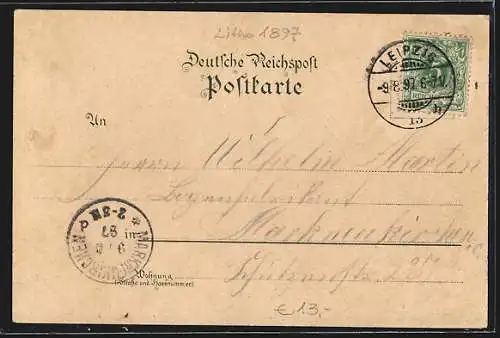 Litho 1897
Deutsche Reichspost
Postkarte
LEIPZIG
9/8.97.6-7
13
An
Herrn Wilhelm Martin
Bogenfabrikant
Markneukirchen
Schützenstr.
MARKNEUKIRCHEN
97
2-3N
Wohnung
(Straße und Hausnummer)
€13,-